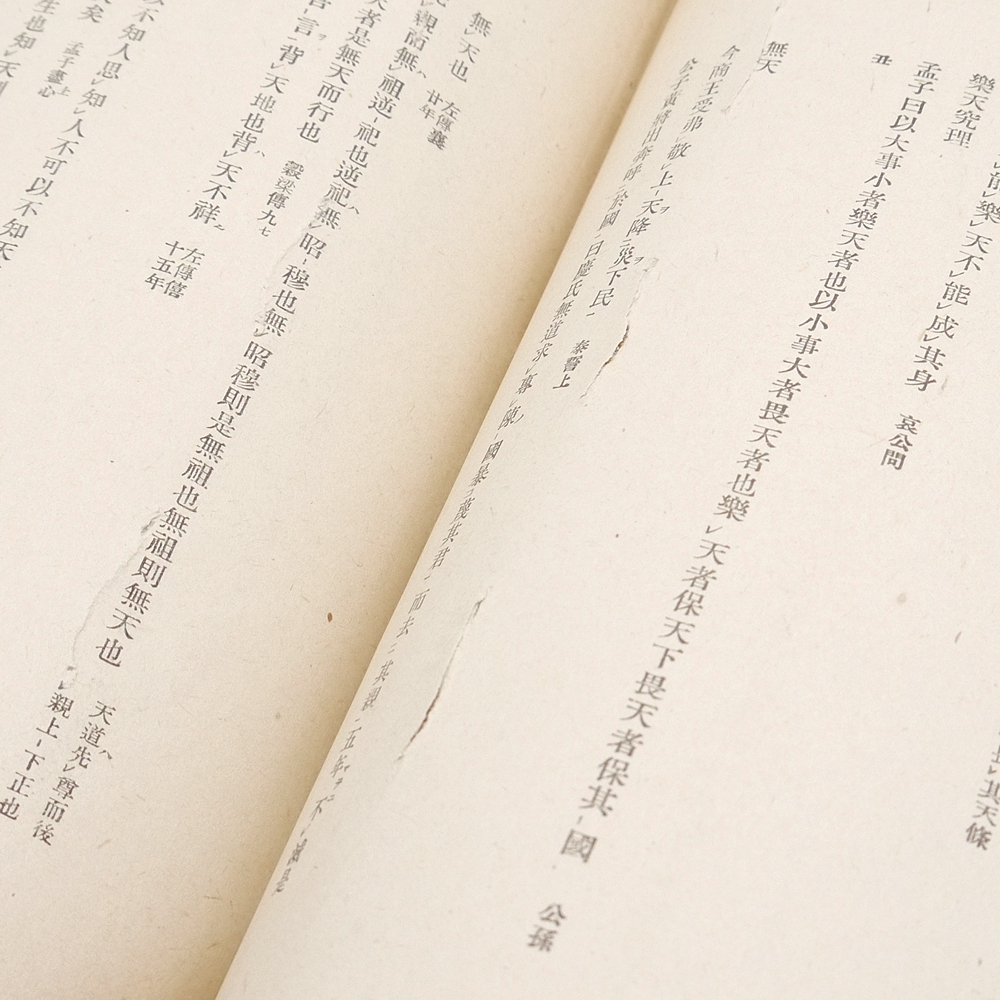 能樂天不能成其身 哀公問
樂天究理
孟子曰以大事小者樂天者也以小事大者畏天者也樂レ天者保天下畏天者保其國 公孫
丑
無天
今商王受弗レ敬上天降災下民 泰誓上
公子黃將出奔呼於國曰慶氏無道求專陳國暴蔑其君而去其親五年不滅是
無天也 左傳襄廿年
親而無祖逆祀也逆祀ハ無昭穆也無昭穆則是無祖也無祖則無天也 天道ハ先レ尊而後レ親上下正也
者是無天而行也 穀梁傳九七
言背天地也背レ天不祥 左傳僖十五年
不知人思知レ人不可以不知天
矣 孟子盡心上
生也知レ天
其天條